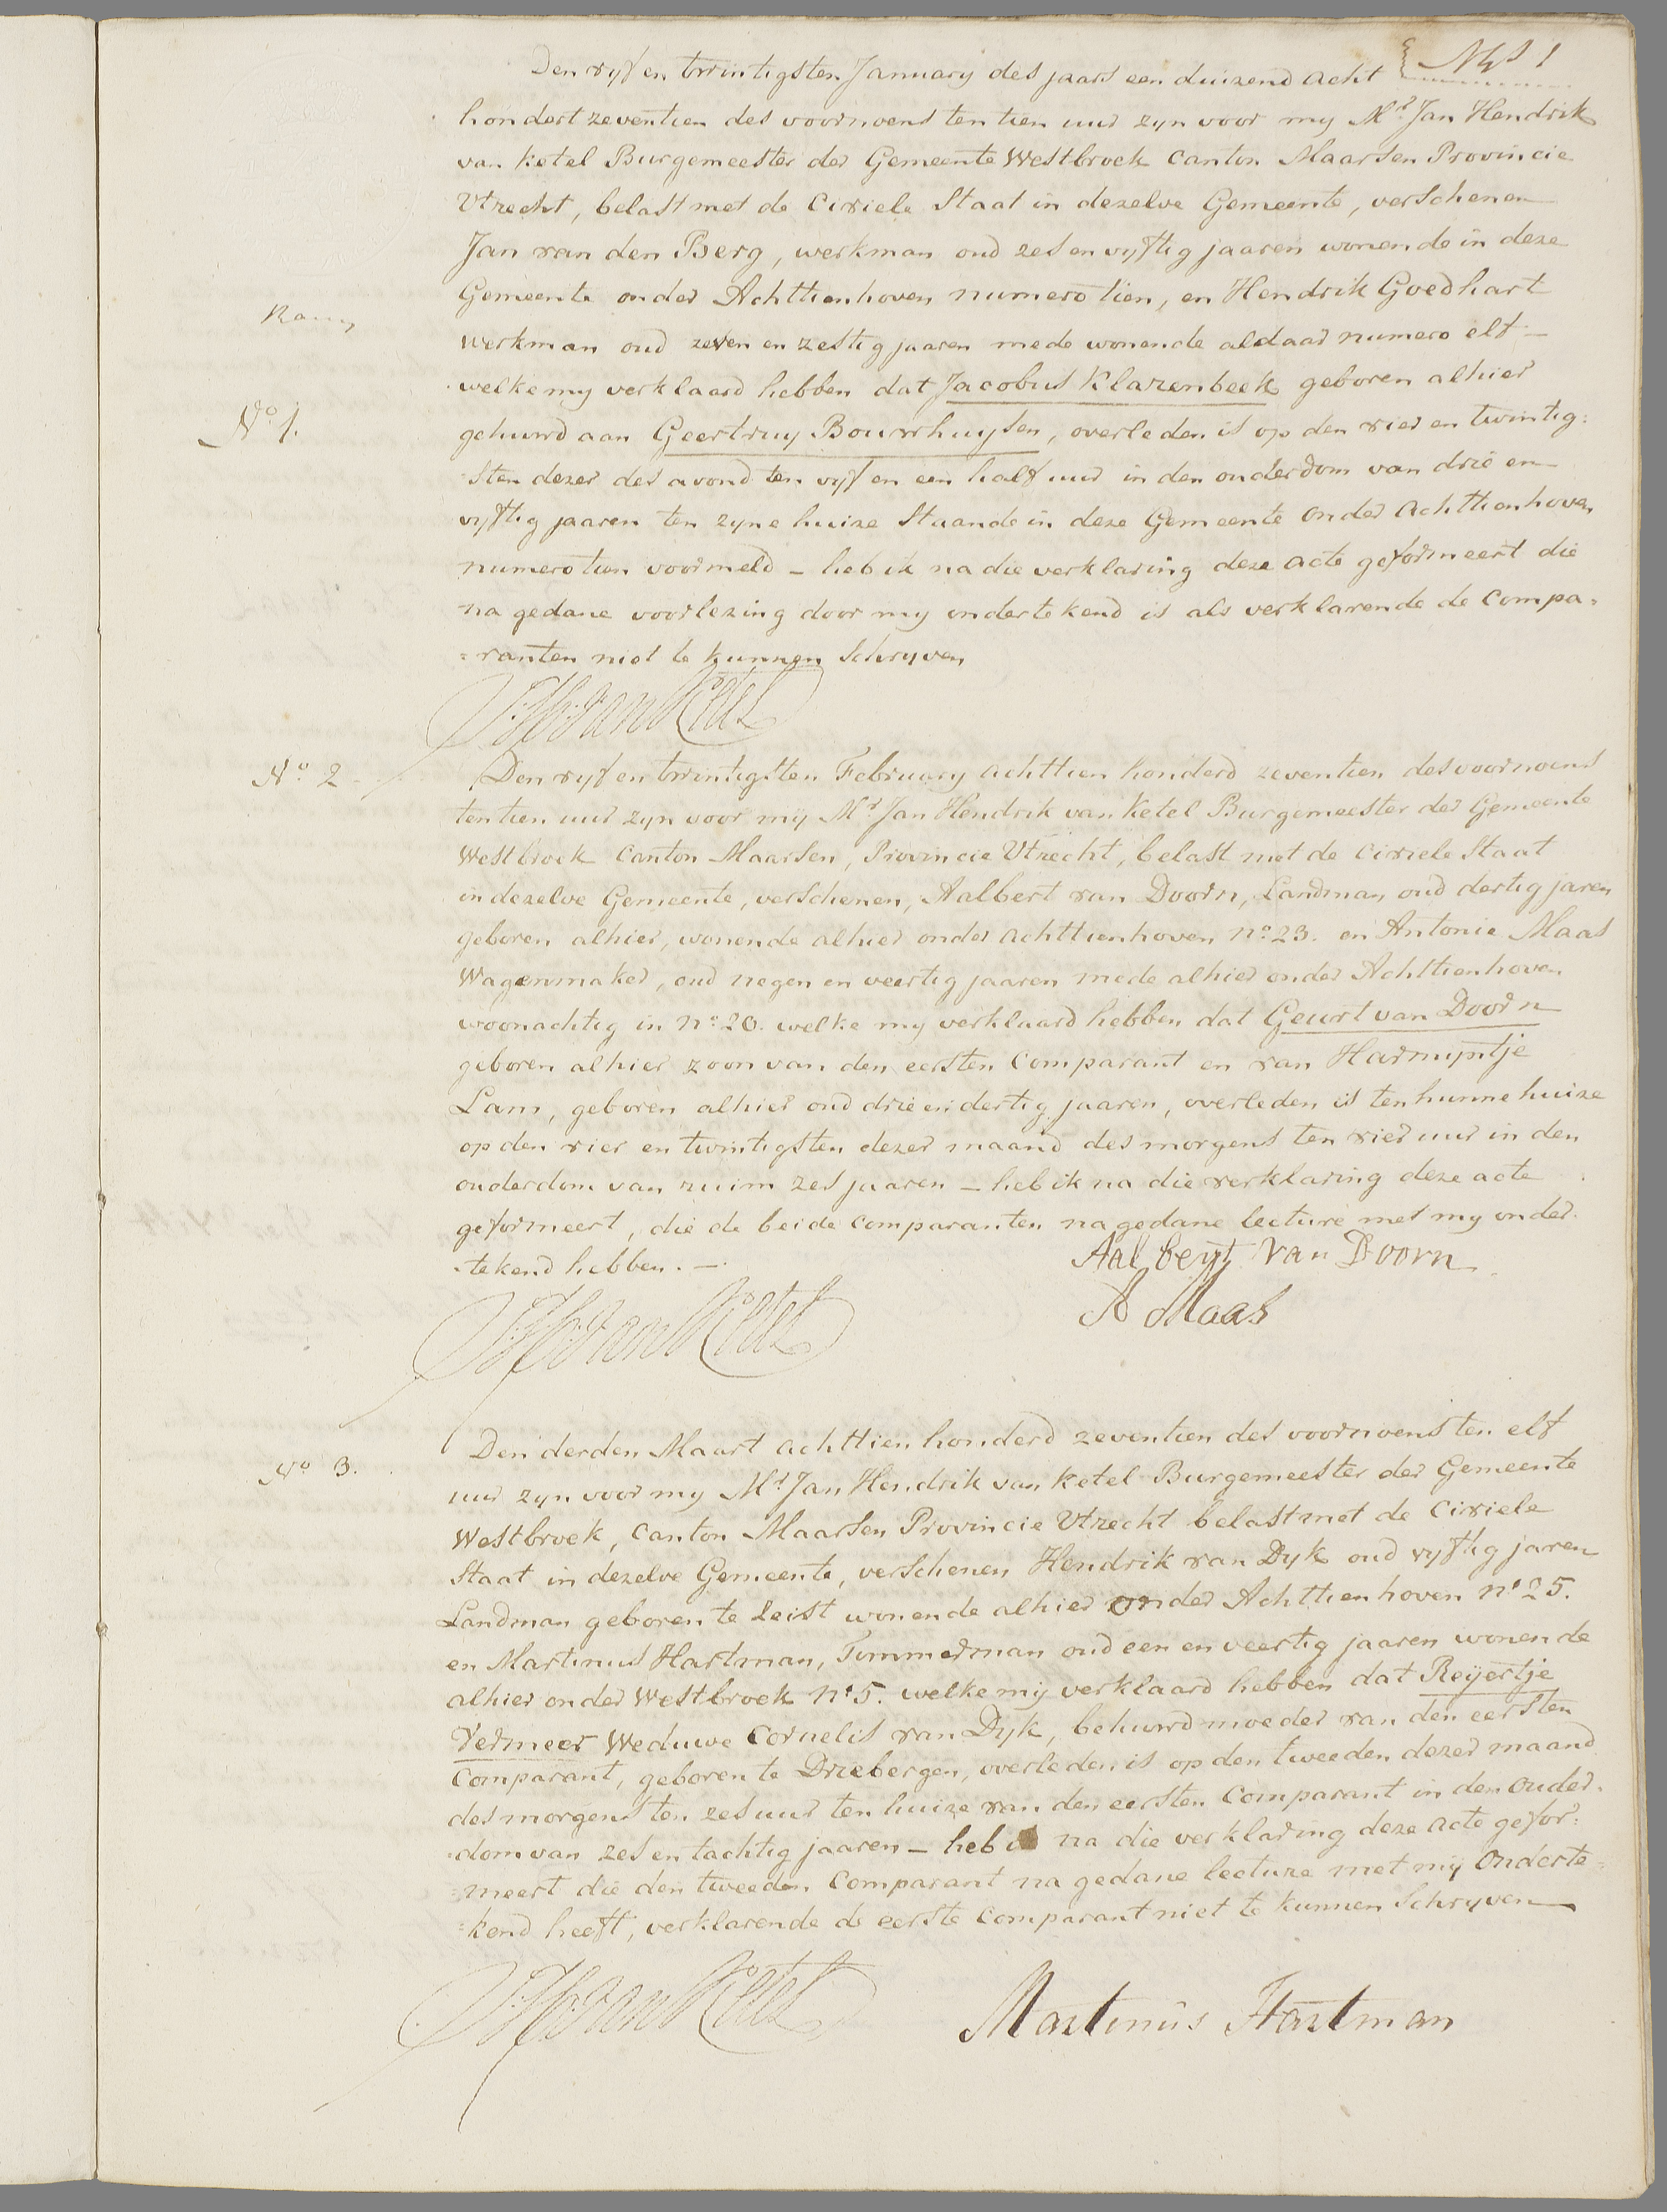 Den vyf en twintigsten January des jaars een duizend acht
hondert zeventien des voornoens ten tien uur zyn voor my Mr. Jan Hendrik
van Ketel Burgemeester der Gemeente Westbroek Canton Maarsen Provincie
Utrecht, belast met de Civiele Staat in dezelve Gemeente, verschenen
Jan van den Berg, werkman oud zes en vyftig jaaren wonende in deze
Gemeente onder Achttienhoven numero tien, en Hendrik Goedhart
werkman oud zeven en zestig jaaren mede wonende aldaar numero elf —
welke my verklaard hebben dat Jacobus Klarenbeek geboren alhier
No. 1.
gehuwd aan Geertruy Bouwhuysen, overleden is op den vier en twintig:
:sten dezer des avond ten vyf en een half uur in den ouderdom van drie en
vyftig jaaren ten zyne huize staande in deze Gemeente onder Achttienhoven
numero tien voormeld – heb ik na die verklaring deze acte geformeert die
na gedane voorlezing door my ondertekend is als verklarende de Compa=
=ranten niet te kunnen schryven
JH van Ketel
No. 2
Den vyf en twintigsten February achttien honderd zeventien des voornoens
ten tien uur zyn voor mij Mr. Jan Hendrik van Ketel Burgemeester der Gemeente
Westbroek Canton Maarsen, Provincie Utrecht, belast met de civiele Staat
in dezelve Gemeente, verschenen, Aalbert van Doorn, Landman, oud dertig jaren
geboren alhier, wonende alhier onder Achttienhoven No. 23. en Antonie Maas
Wagenmaker, oud negen en veertig jaaren mede alhier onder Achttienhoven
woonachtig in No. 20. welke my verklaard hebben dat Geurt van Doorn
geboren alhier zoon van den eersten Comparant en van Harmijntje
Lam, geboren alhier oud drie en dertig jaaren, overleden is ten hunne huize
op den vier en twintigsten dezer maand des morgens ten vier uur in den
ouderdom van ruim zes jaaren – heb ik na die verklaring deze acte
geformeert, die de beide comparanten na gedane lecture met my onder
:tekend hebben. —
Aalbert van Doorn
A Maas
JH van Ketel
No 3.
Den derden Maart achttien honderd zeventien des voornoens ten elf
uur zyn voor my Mr. Jan Hendrik van Ketel Burgemeester der Gemeente
Westbroek, Canton Maarsen Provincie Utrecht belast met de Civiele
Staat in dezelve Gemeente, verschenen Hendrik van Dyk oud vyftig jaren
Landman geboren te Zeist wonende alhier onder Achttienhoven No. 25.
en Martinus Hartman, Timmerman oud een en veertig jaaren wonende
alhier onder Westbroek No. 5. welke mij verklaard hebben dat Reijertje
Vermeer Weduwe Cornelis van Dyk, behuwdmoeder van den eersten
Comparant, geboren te Driebergen, overleden is op den tweeden dezer maand
des morgens ten zes uur ten huize van den eersten Comparant in den ouder=
:dom van zes en tachtig jaaren – heb ik na die verklaring deze acte gefor:
:meert die den tweeden Comparant na gedane lecture met mij onderte=
=kend heeft, verklarende de eerste Comparant niet te kunnen schryven
JH van Ketel
Martinus Hartman